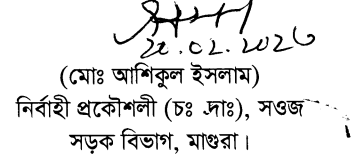 20.02.2026
(মোঃ আশিকুল ইসলাম)
নির্বাহী প্রকৌশলী (চঃ দাঃ), সওজ
সড়ক বিভাগ, মাগুরা।